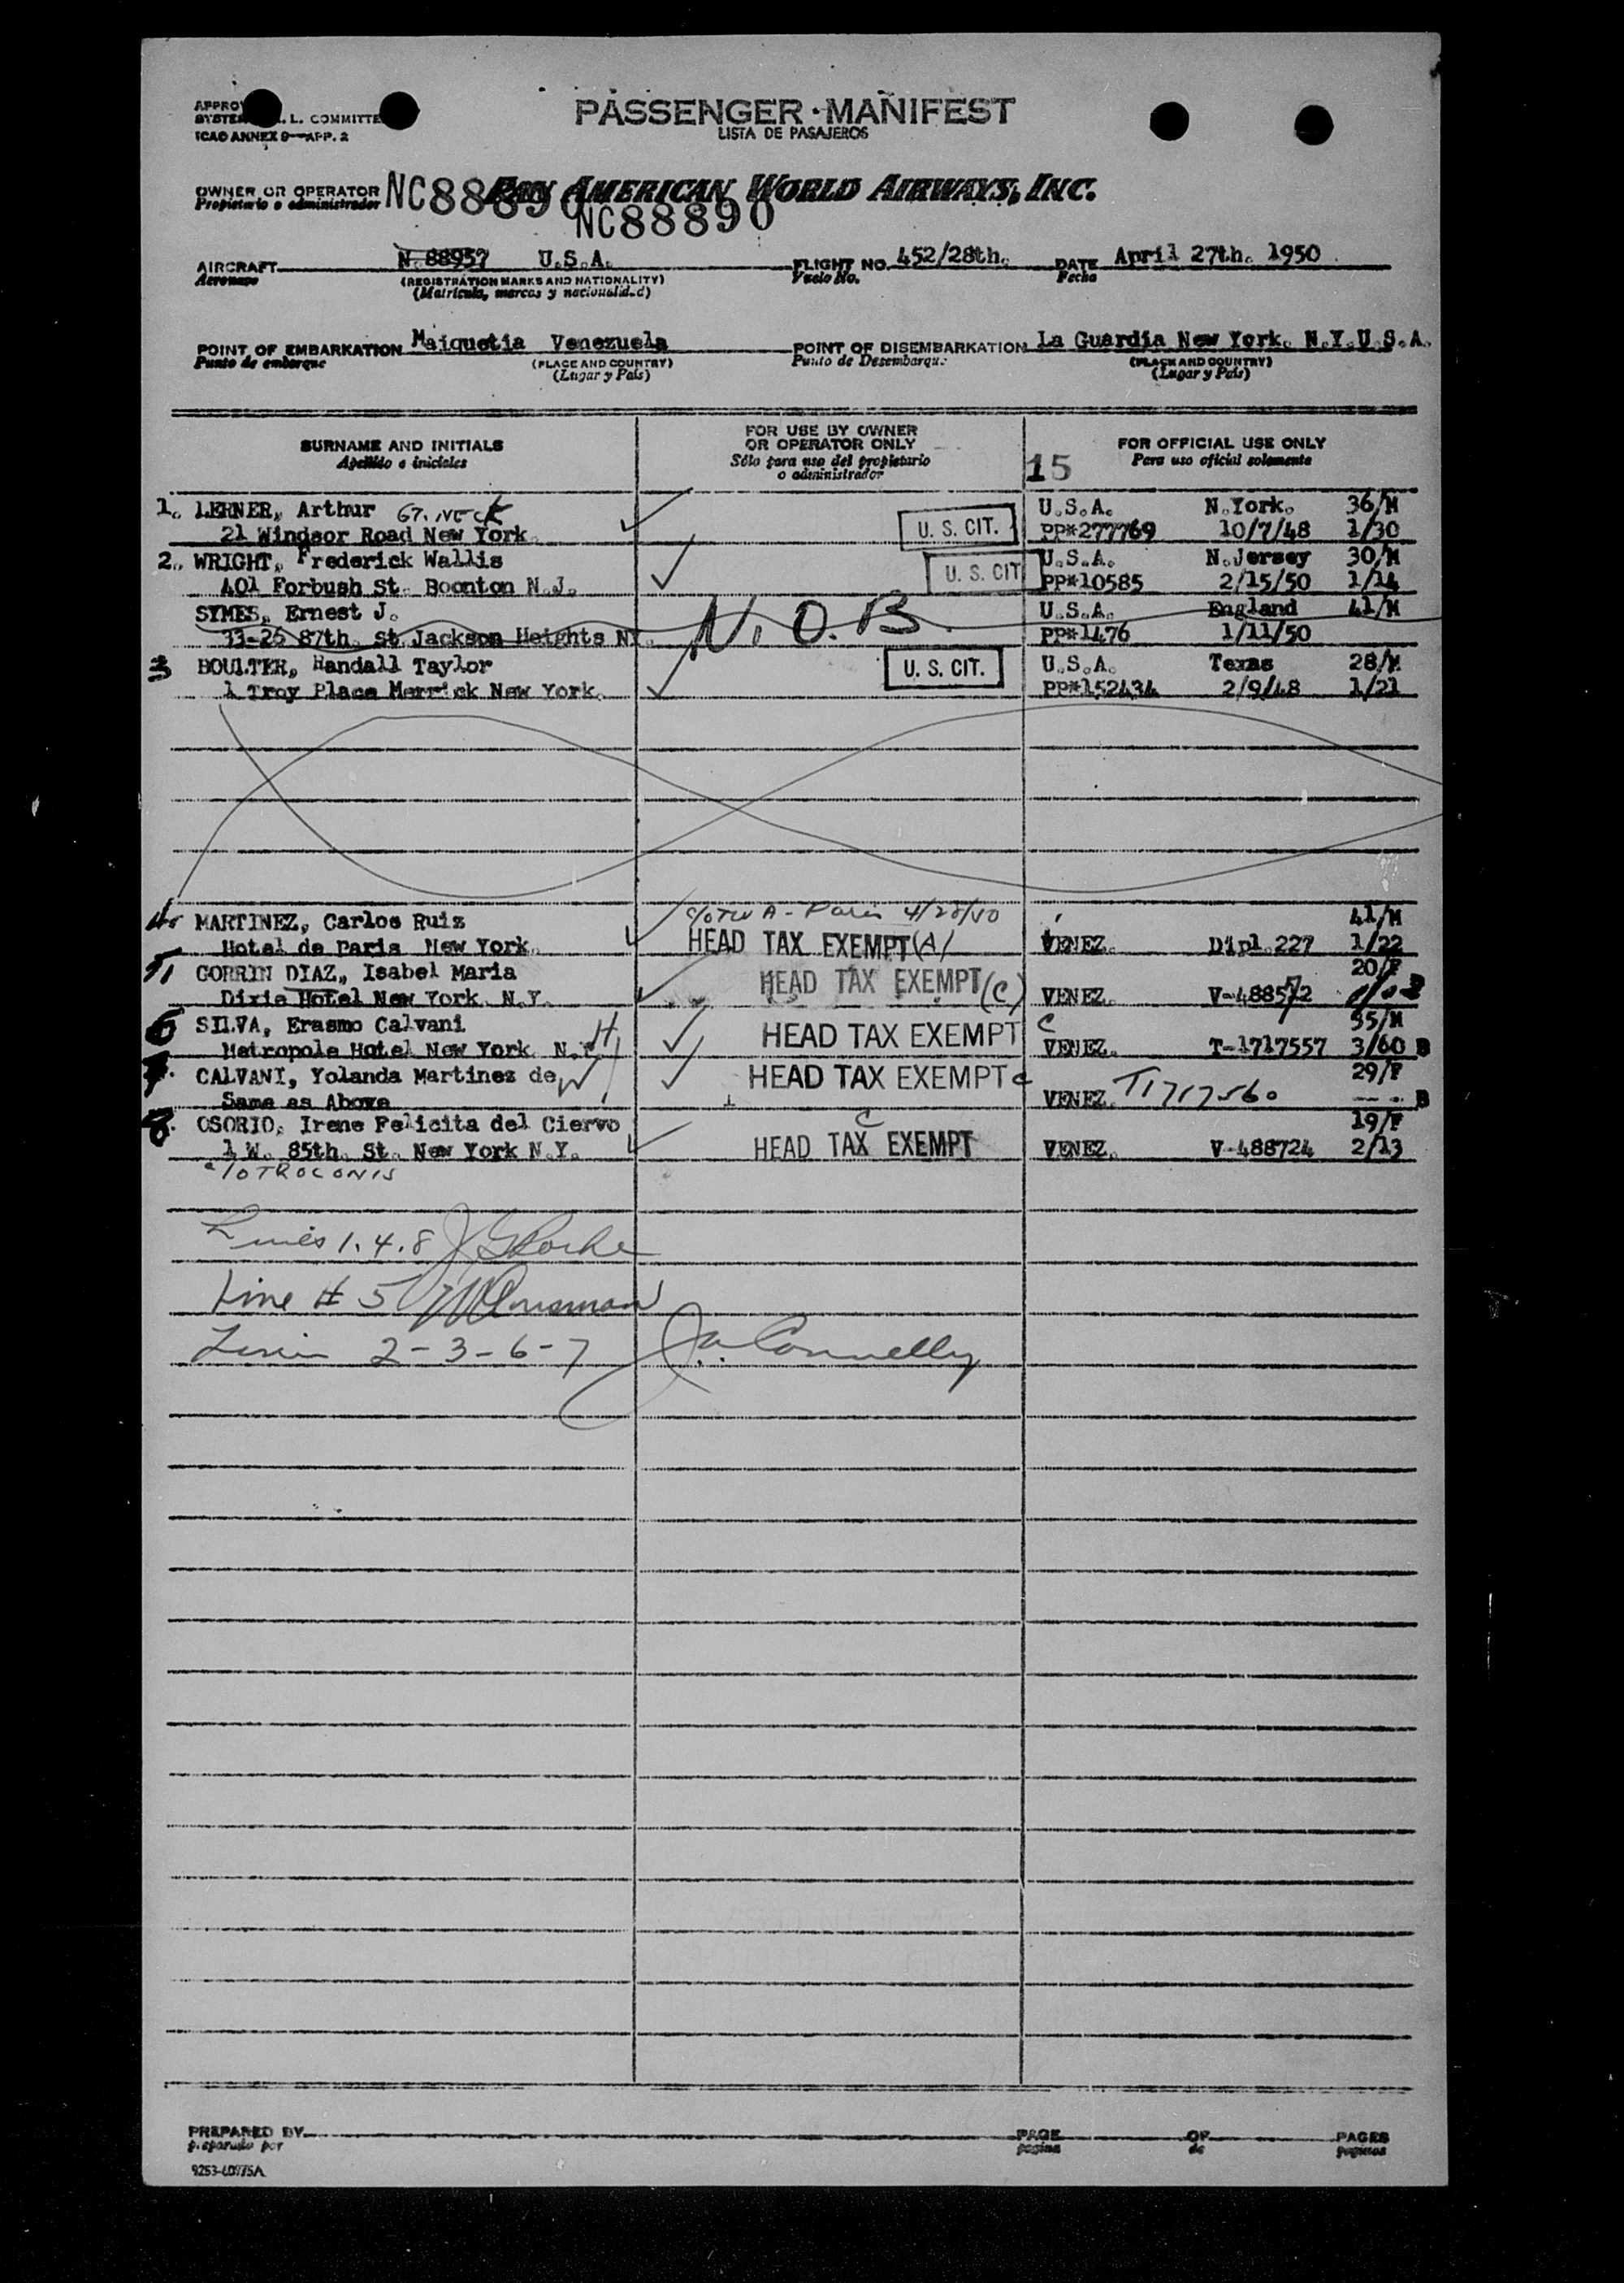 PASSENGER MANIFEST
LISTA DE PASAJEROS
L. COMMITTE
ICAO ANNEX 9—APP. 2
OWNER OR OPERATOR NC88890 PAN AMERICAN WORLD AIRWAYS, INC.
Propietario o administrador
NC88890
AIRCRAFT N-88957 U.S.A. FLIGHT NO. 452/28th. DATE April 27th. 1950
Aeronave (REGISTRATION MARKS AND NATIONALITY) Vuelo No. Fecha
(Matricula, marcas y nacionalidad)
POINT OF EMBARKATION Maiquetia Venezuela POINT OF DISEMBARKATION La Guardia New York. N.Y.U.S.A.
Punto de embarque (PLACE AND COUNTRY) Punto de Desembarque (PLACE AND COUNTRY)
(Lugar y País) (Lugar y País)
SURNAME AND INITIALS FOR USE BY OWNER OR OPERATOR ONLY FOR OFFICIAL USE ONLY
Apellido e iniciales Sólo para uso del propietario o administrador 15 Para uso oficial solamente
1. LERNER, Arthur GT. NECK U.S.A. N.York. 36/M
21 Windsor Road New York. U. S. CIT. PP#277769 10/7/48 1/30
2. WRIGHT, Frederick Wallis U.S.A. N.Jersey 30/M
401 Forbush St. Boonton N.J. U. S. CIT PP#10585 2/15/50 1/14
SYMES, Ernest J. N.O.B. U.S.A. England 41/M
33-26 87th. St Jackson Heights NY. PP#1476 1/11/50
3 BOULTER, Randall Taylor U.S.A. Texas 28/M
1 Troy Place Merrick New York. U. S. CIT. PP#152434 2/9/48 1/21
4. MARTINEZ, Carlos Ruiz c/o TWA - Paris 4/28/50 41/M
Hotel de Paris New York. HEAD TAX EXEMPT (A) VENEZ. Dipl.227 1/22
5 GORRIN DIAZ, Isabel Maria HEAD TAX EXEMPT (C) 20/F
Dixie Hotel New York. N.Y. VENEZ. V-488572
6 SILVA, Erasmo Calvani H HEAD TAX EXEMPT C 35/M
Metropole Hotel New York. N.Y. VENEZ. T-1717557 3/60 B
7. CALVANI, Yolanda Martinez de W HEAD TAX EXEMPT c 29/F
Same as Above VENEZ. T1717560 B
8. OSORIO, Irene Felicita del Ciervo C 19/F
1 W. 85th. St. New York N.Y. HEAD TAX EXEMPT VENEZ. V-488724 2/13
c/o TROCONIS
Lines 1.4.8
Line # 5
Lines 2-3-6-7 J. Connelly
PREPARED BY PAGE OF PAGES
preparado por pagina de paginas